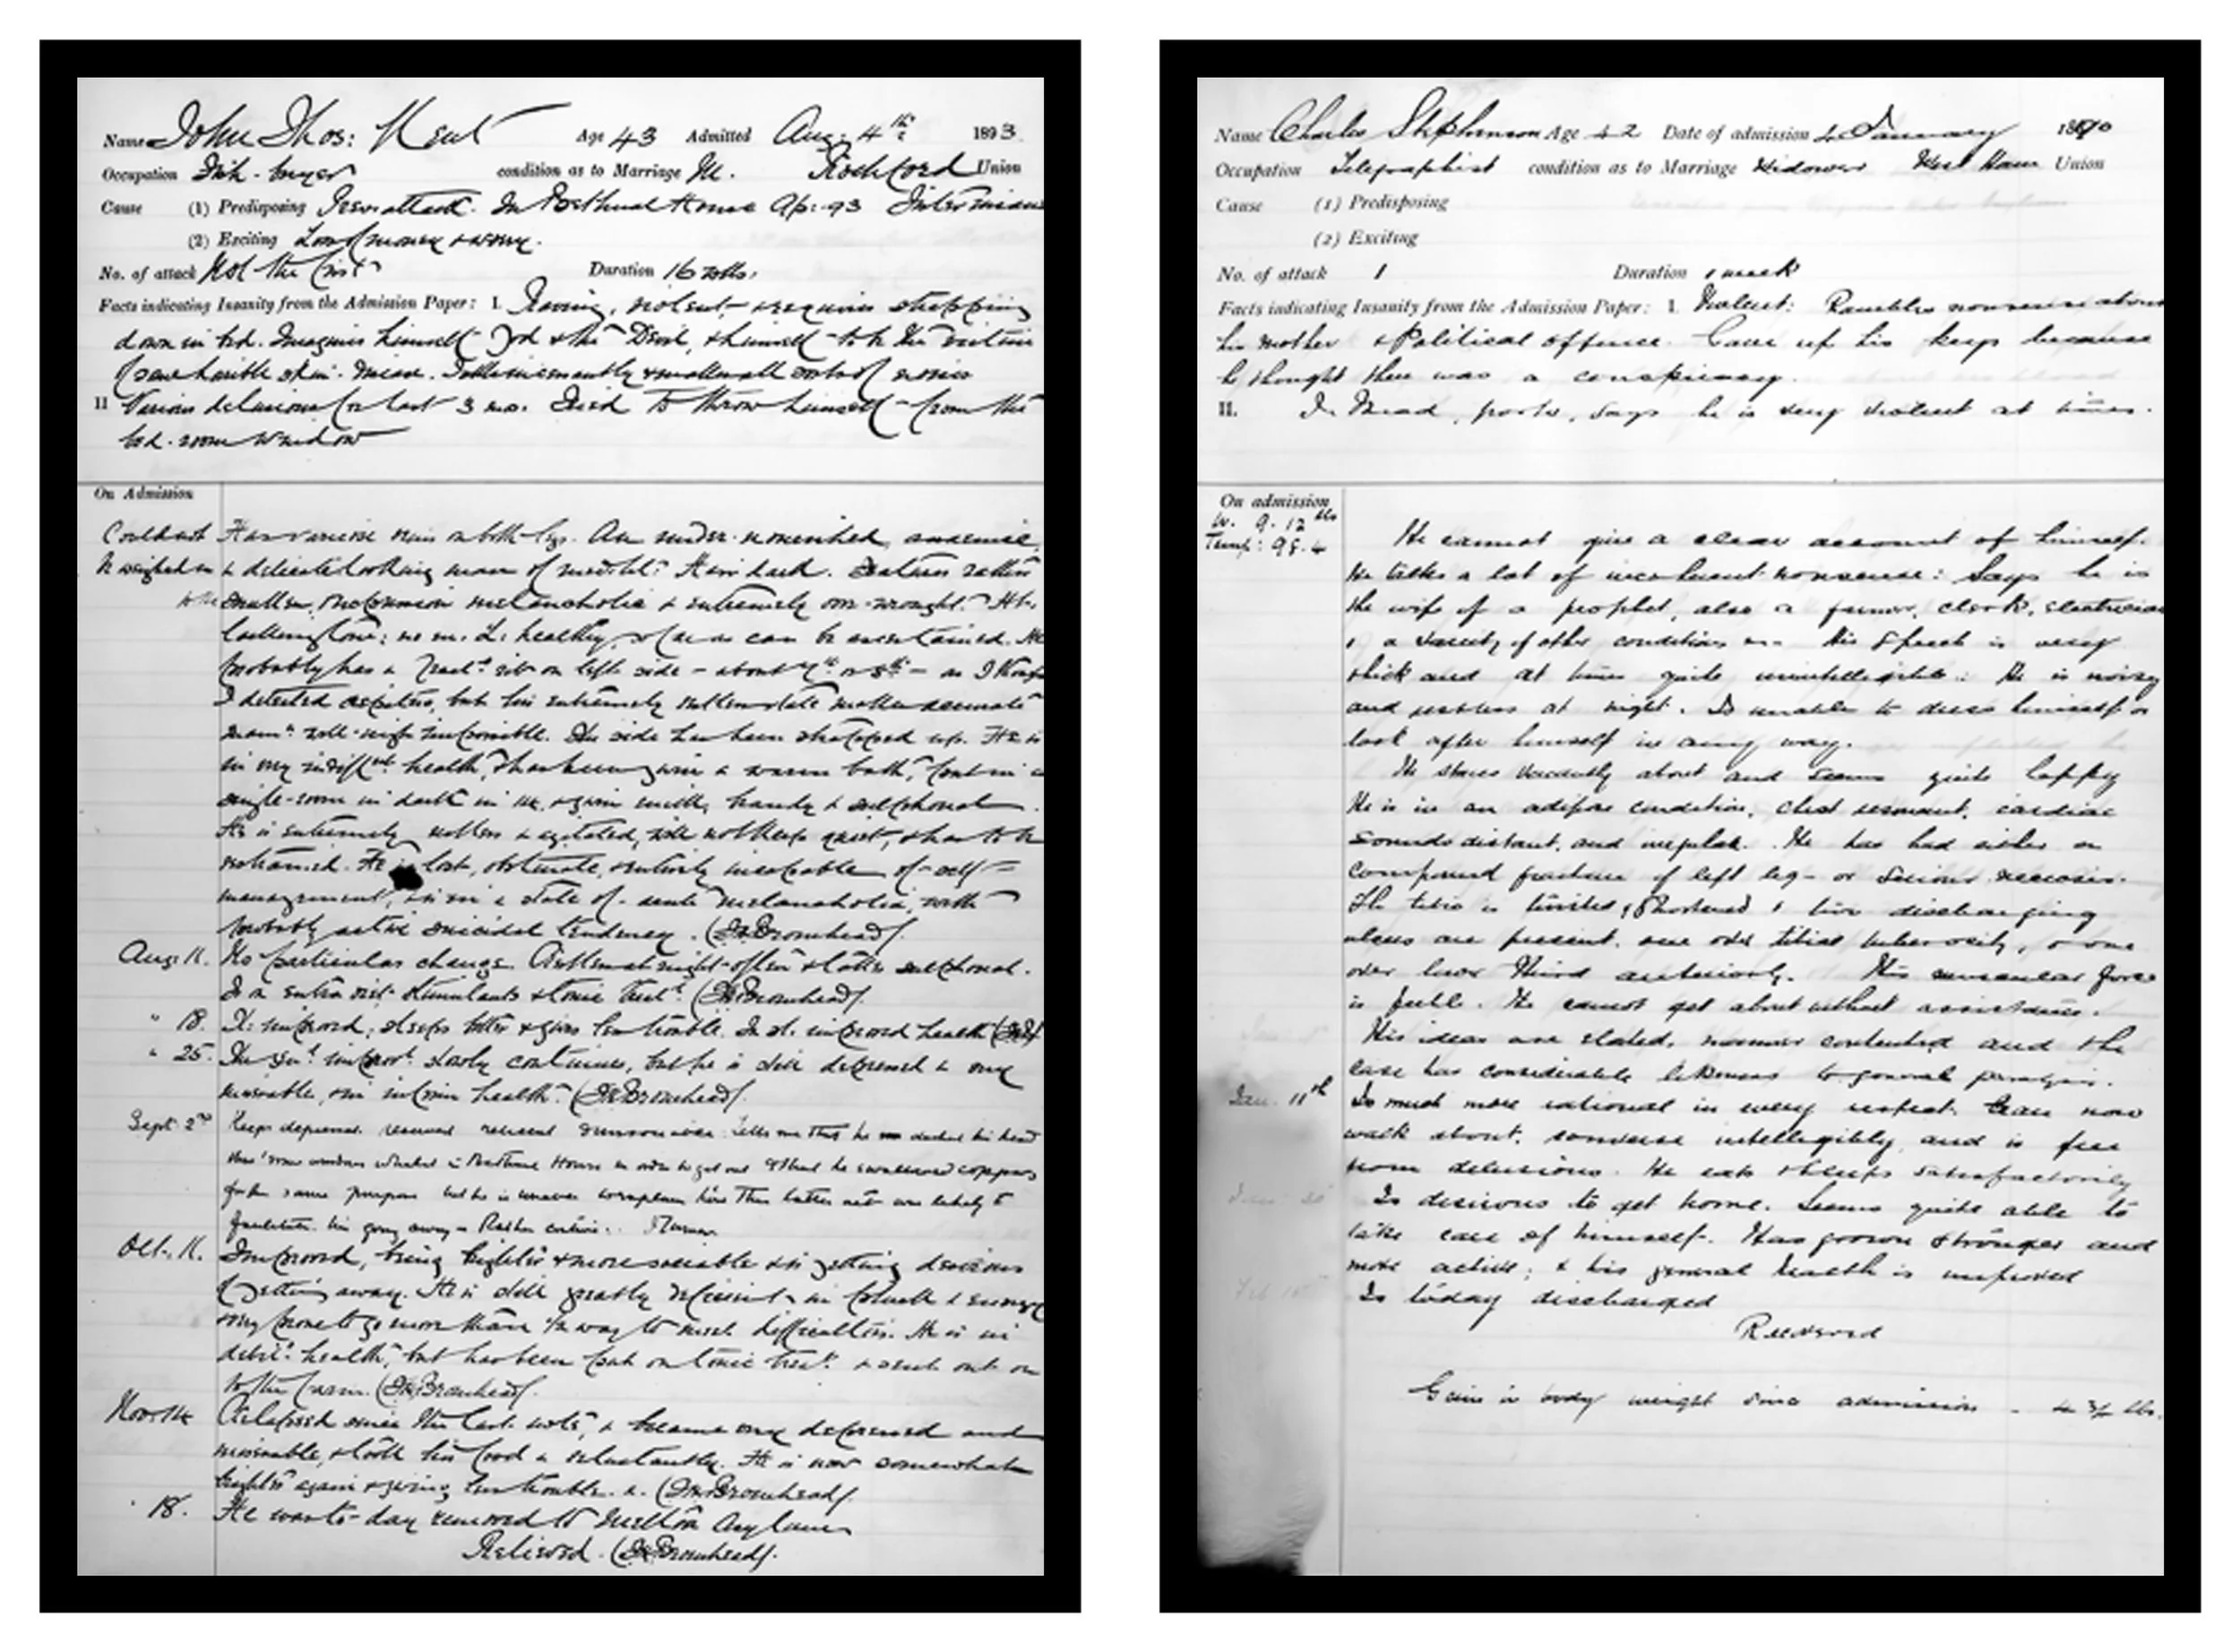 Name John Thos: Kent Age 43 Admitted Aug: 4th 1893.
Occupation Fish-buyer condition as to Marriage M. Rochford Union
Cause (1) Predisposing Prev: attack. In Bethnal House Ap: 93
(2) Exciting Loss of money & worry.
No. of attack Not the first Duration 16 mths.
Facts indicating Insanity from the Admission Paper: I. Raving, violent, & requires strapping
down in bed. Imagines himself God & the Devil, & himself to be the victim
of some horrible skin-disease. Talks incessantly & makes all sorts of noises
II Various delusions for last 3 mos. Tried to throw himself from the
bed-room window
On Admission
Could not Has varicose veins on both legs. An under-nourished, anaemic,
be weighed & delicate looking man of medm ht: Hair dark. Features rather
small, expression melancholic & extremely over-wrought. Ht.
lacking tone: no m. L: healthy, so far as can be ascertained. He
probably has a fractd rib on left side - about 7th or 8th - as I thought
I detected crepitus, but his extremely restless state makes accurate
examn well-nigh impossible. The side has been strapped up. He is
in very indiffnt health, & has been given a warm bath, put in a
single-room in dark & given milk, brandy & sulphonal.
He is extremely restless & agitated, will not keep quiet, & has to be
restrained. He is lost, obstinate, entirely incapable of self-
management, & is in a state of acute melancholia, with
probably active suicidal tendency. (JH Bromhead).
Aug: 11. No particular change. Restless at night - often & takes sulphonal.
Is on extra diet - stimulants & tonic treatt. (JH Bromhead).
" 18. Is: improved; sleeps better & gives less trouble. In sl. improved health
" 25. The genl improvt slowly continues, but he is still depressed & very
miserable, & is in health. (JH Bromhead).
Sept 2nd Keeps depressed reserved reticent Tells me that he dashed his head
thro' some windows whilst in Bethnal House in order to get out & that he swallowed coppers
for the same purpose but he is unable to explain how this latter act was likely to
facilitate his going away - Rather
Oct. 11. Improved, being brighter & more sociable & is getting desirous
of getting away. He is still greatly deficient in & energy
very prone to go more than 1/2 way to meet difficulties. He is in
health, but has been put on tonic treatt & sent out on
to the farm. (JH Bromhead).
Nov. 14 Relapsed since the last note, & became very depressed and
miserable, & took his food reluctantly. He is now somewhat
brighter again & giving less trouble. (JH Bromhead).
" 18. He was to-day removed to Melton Asylum
Relieved. (JH Bromhead).
Name Charles Stephenson Age 42 Date of admission 4 January 1890
Occupation Telegraphist condition as to Marriage Widower West Ham Union
Cause (1) Predisposing
(2) Exciting
No. of attack 1 Duration 1 week
Facts indicating Insanity from the Admission Paper: I. Violent: Rambles nonsense about
his mother & Political offence. Gave up his keys because
he thought there was a conspiracy.
II. Jn Mead, porter, says he is very violent at times.
On admission
W. 9. 12 lbs
Temp: 98.4
He cannot give a clear account of himself.
He talks a lot of incoherent nonsense: Says he is
the wife of a prophet, also a farmer, clerk, electrician
& a variety of other conditions. His speech is very
thick and at times quite unintelligible: He is noisy
and restless at night. Is unable to dress himself or
look after himself in any way.
He stares vacantly about and seems quite happy
He is in an adipose condition, chest resonant, cardiac
sounds distant, and irregular. He has had either a
compound fracture of left leg - or serious necrosis.
The tibia is twisted, shortened & two discharging
ulcers are present, one over tibial tuberosity, & one
over lower third anteriorly. His muscular force
is feeble. He cannot get about without assistance.
His ideas are elated, manner contented and the
case has considerable likeness to general paralysis.
Jan. 11th Is much more rational in every respect. Can now
walk about, converse intelligibly, and is free
from delusions. He eats & sleeps satisfactorily
Is desirous to get home. Seems quite able to
take care of himself. Has grown stronger and
more active; & his general health is improved
Is today discharged
Recovered
Gain in body weight since admission - 4 3/4 lbs.